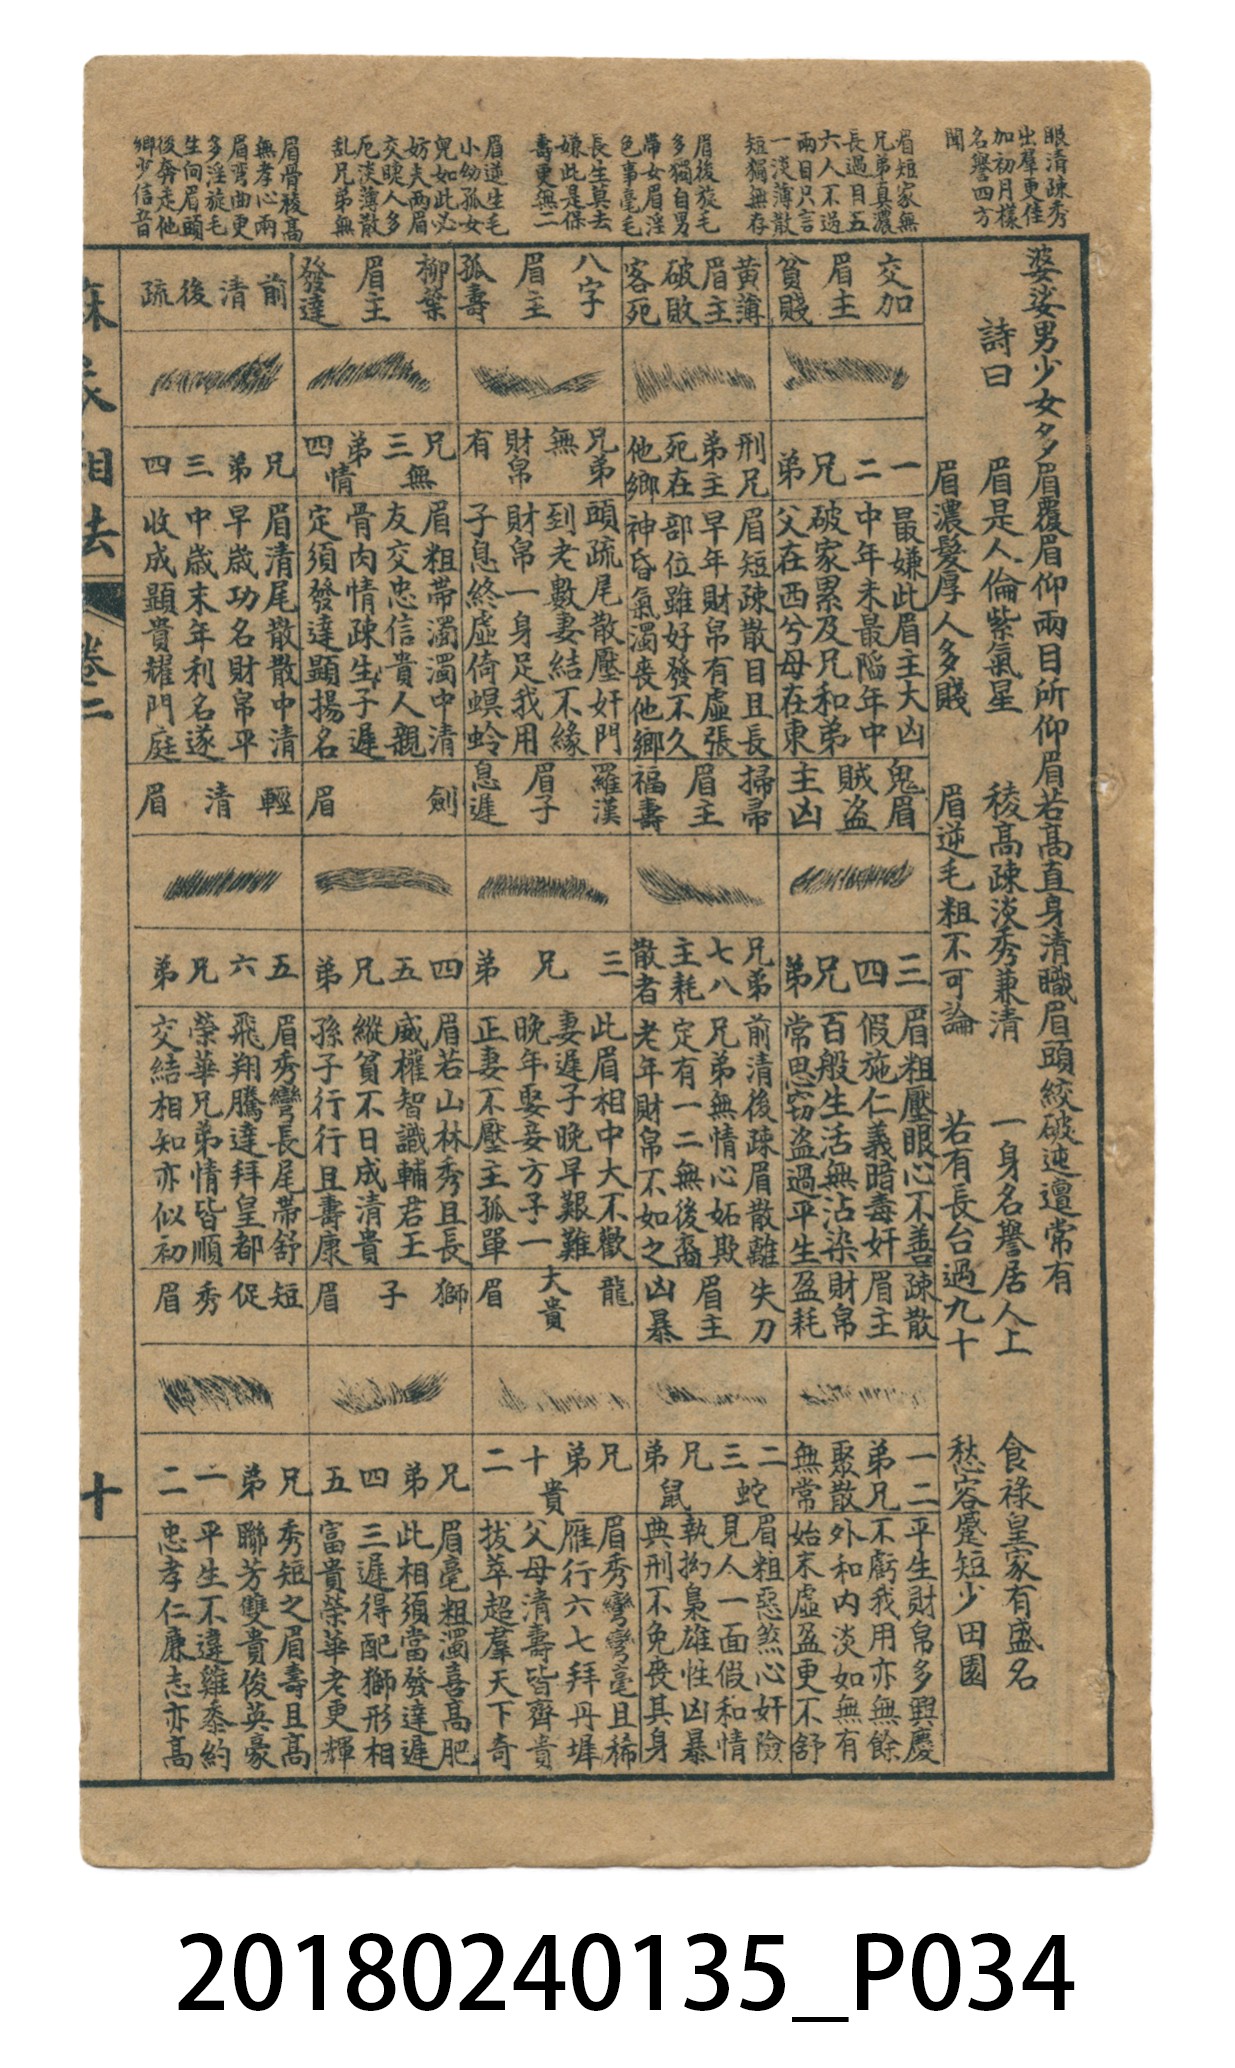 眼清疎秀
出羣更佳
加初月樣
名譽四方
聞
眉短家無
兄弟真濃
長過目五
六人不過
兩目只言
一淡薄散
短獨無存
眉後旋毛
多獨自男
帶女眉淫
色事毫毛
長生莫去
嫌此是保
壽更無二
眉逆生毛
小幼孤女
兒如此必
妨夫兩眉
交睫人多
厄淡薄散
乱兄弟無
眉骨稜高
無孝心兩
眉彎曲更
多淫旋毛
生向眉頭
後奔走他
鄉少信音
婆娑男少女多眉覆眉仰兩目所仰眉若高直身清職眉頭絞破迍邅常有
詩曰
眉是人倫紫氣星 稜高疎淡秀兼清 一身名譽居人上 食祿皇家有盛名
眉濃髮厚人多賤 眉逆毛粗不可論 若有長台過九十 愁容蹙短少田園
交加眉主貧賤
一二兄弟
最嫌此眉主大凶
中年未最陷年中
破家累及兄和弟
父在西兮母在東
黃薄眉主破敗客死
刑兄弟主死在他鄉
眉短疎散目且長
早年財帛有虛張
部位雖好發不久
神昏氣濁喪他鄉
八字眉主孤壽
兄弟無財帛有
頭疏尾散壓奸門
到老數妻結不緣
財帛一身足我用
子息終虛倚螟蛉
柳葉眉主發達
兄三弟四無情
眉粗帶濁濁中清
友交忠信貴人親
骨肉情疎生子遲
定須發達顯揚名
前清後疏
兄弟三四
眉清尾散散中清
早歲功名財帛平
中歲末年利名遂
收成顯貴耀門庭
鬼眉賊盜主凶
三四兄弟
眉粗壓眼心不善
假施仁義暗毒奸
百般生活無沾染
常思窃盜過平生
掃帚眉主福壽
兄弟七八主耗散者
前清後疎眉散離
兄弟無情心妬欺
定有一二無後裔
老年財帛不如之
羅漢眉子息遲
三兄弟
此眉相中大不歡
妻遲子晚早艱難
晚年娶妾方子一
正妻不壓主孤單
劍眉
四五兄弟
眉若山林秀且長
威權智識輔君王
縱貧不日成清貴
孫子行行且壽康
輕清眉
五六兄弟
眉秀彎長尾帶舒
飛翔騰達拜皇都
榮華兄弟情皆順
交結相知亦似初
疎散眉主財帛盈耗
一二弟兄聚散無常
平生財帛多興慶
不虧我用亦無餘
外和內淡如無有
始末虛盈更不舒
失刀眉主凶暴
二三兄弟蛇鼠
眉粗惡煞心奸險
見人一面假和情
執拗梟雄性凶暴
典刑不免喪其身
龍眉大貴
兄弟十二貴
眉秀彎彎毫且稀
雁行六七拜丹墀
父母清壽皆齊貴
拔萃超羣天下奇
獅子眉
兄弟四五
眉毫粗濁喜高肥
此相須當發達遲
三遲得配獅形相
富貴榮華老更輝
短促秀眉
兄弟一二
秀短之眉壽且高
聯芳雙貴俊英豪
平生不違雞黍約
忠孝仁廉志亦高
麻衣相法
卷二
十
20180240135_P034